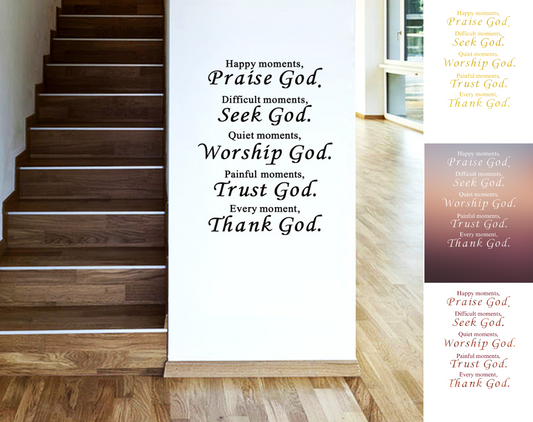 Happy moments,
Praise God.
Difficult moments,
Seek God.
Quiet moments,
Worship God.
Painful moments,
Trust God.
Every moment,
Thank God.
Happy moments,
Praise God.
Difficult moments,
Seek God.
Quiet moments,
Worship God.
Painful moments,
Trust God.
Every moment,
Thank God.
Happy moments,
Praise God.
Difficult moments,
Seek God.
Quiet moments,
Worship God.
Painful moments,
Trust God.
Every moment,
Thank God.
Happy moments,
Praise God.
Difficult moments,
Seek God.
Quiet moments,
Worship God.
Painful moments,
Trust God.
Every moment,
Thank God.